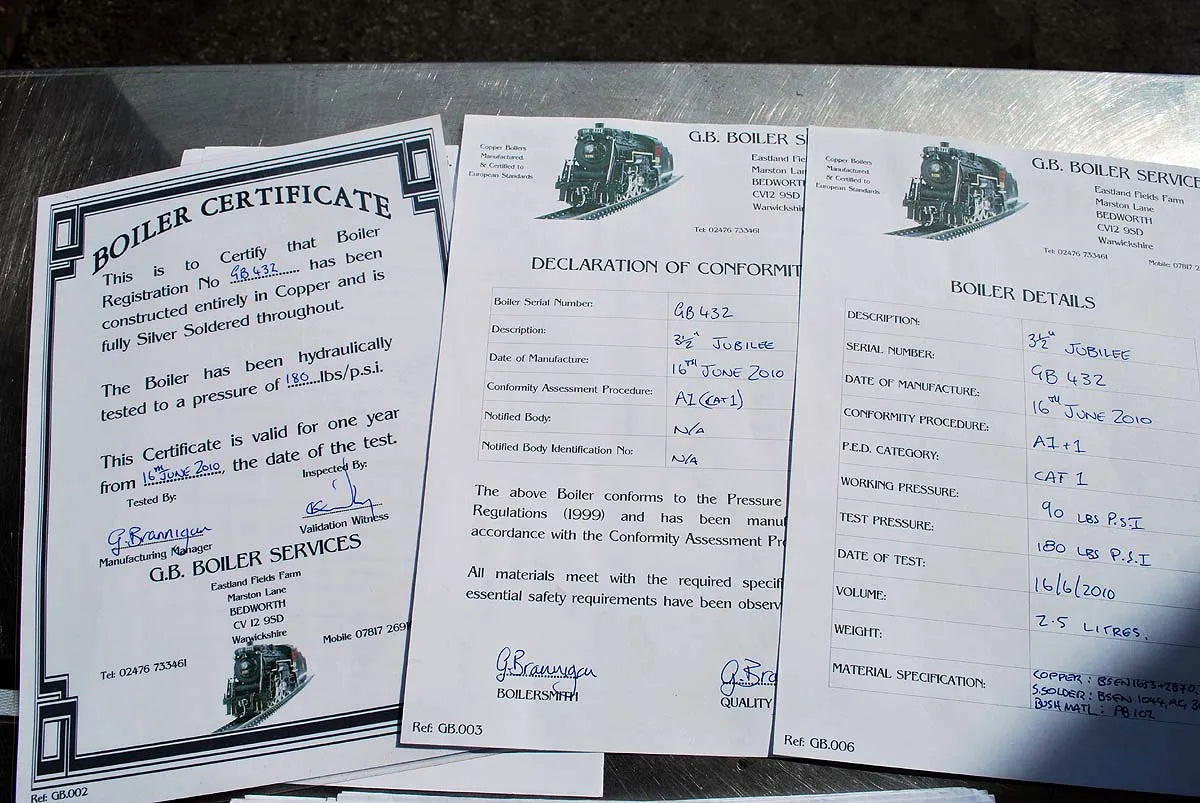 BOILER CERTIFICATE
This is to Certify that Boiler
Registration No GB 432 has been
constructed entirely in Copper and is
fully Silver Soldered throughout.
The Boiler has been hydraulically
tested to a pressure of 180 lbs/p.s.i.
This Certificate is valid for one year
from 16TH JUNE 2010, the date of the test.
Tested By:
Inspected By:
G. Brannigan
Manufacturing Manager
Validation Witness
G.B. BOILER SERVICES
Eastland Fields Farm
Marston Lane
BEDWORTH
CV 12 9SD
Warwickshire
Tel: 02476 733461
Mobile 07817 269
Ref: GB.002
Copper Boilers
Manufactured,
& Certified to
European Standards
G.B. BOILER S
Eastland Fie
Marston Lan
BEDWORT
CV12 9SD
Warwickshi
Tel: 02476 733461
DECLARATION OF CONFORMIT
Boiler Serial Number: GB 432
Description: 3½" JUBILEE
Date of Manufacture: 16TH JUNE 2010
Conformity Assessment Procedure: A1 (CAT 1)
Notified Body: N/A
Notified Body Identification No: N/A
The above Boiler conforms to the Pressure
Regulations (1999) and has been manuf
accordance with the Conformity Assessment Pr
All materials meet with the required specif
essential safety requirements have been observ
G. Brannigan
G. Bra
BOILERSMITH
QUALITY
Ref: GB.003
Copper Boilers
Manufactured,
& Certified to
European Standards
G.B. BOILER SERVICE
Eastland Fields Farm
Marston Lane
BEDWORTH
CV12 9SD
Warwickshire
Tel: 02476 733461
Mobile: 07817 2
BOILER DETAILS
DESCRIPTION: 3½" JUBILEE
SERIAL NUMBER: GB 432
DATE OF MANUFACTURE: 16TH JUNE 2010
CONFORMITY PROCEDURE: A1+1
P.E.D. CATEGORY: CAT 1
WORKING PRESSURE: 90 LBS P.S.I
TEST PRESSURE: 180 LBS P.S.I
DATE OF TEST: 16/6/2010
VOLUME: 2.5 LITRES.
WEIGHT:
MATERIAL SPECIFICATION: COPPER: BSEN1653+2870
S.SOLDER: BSEN 1044, AG, 3
BUSH MATL: PB 102
Ref: GB.006